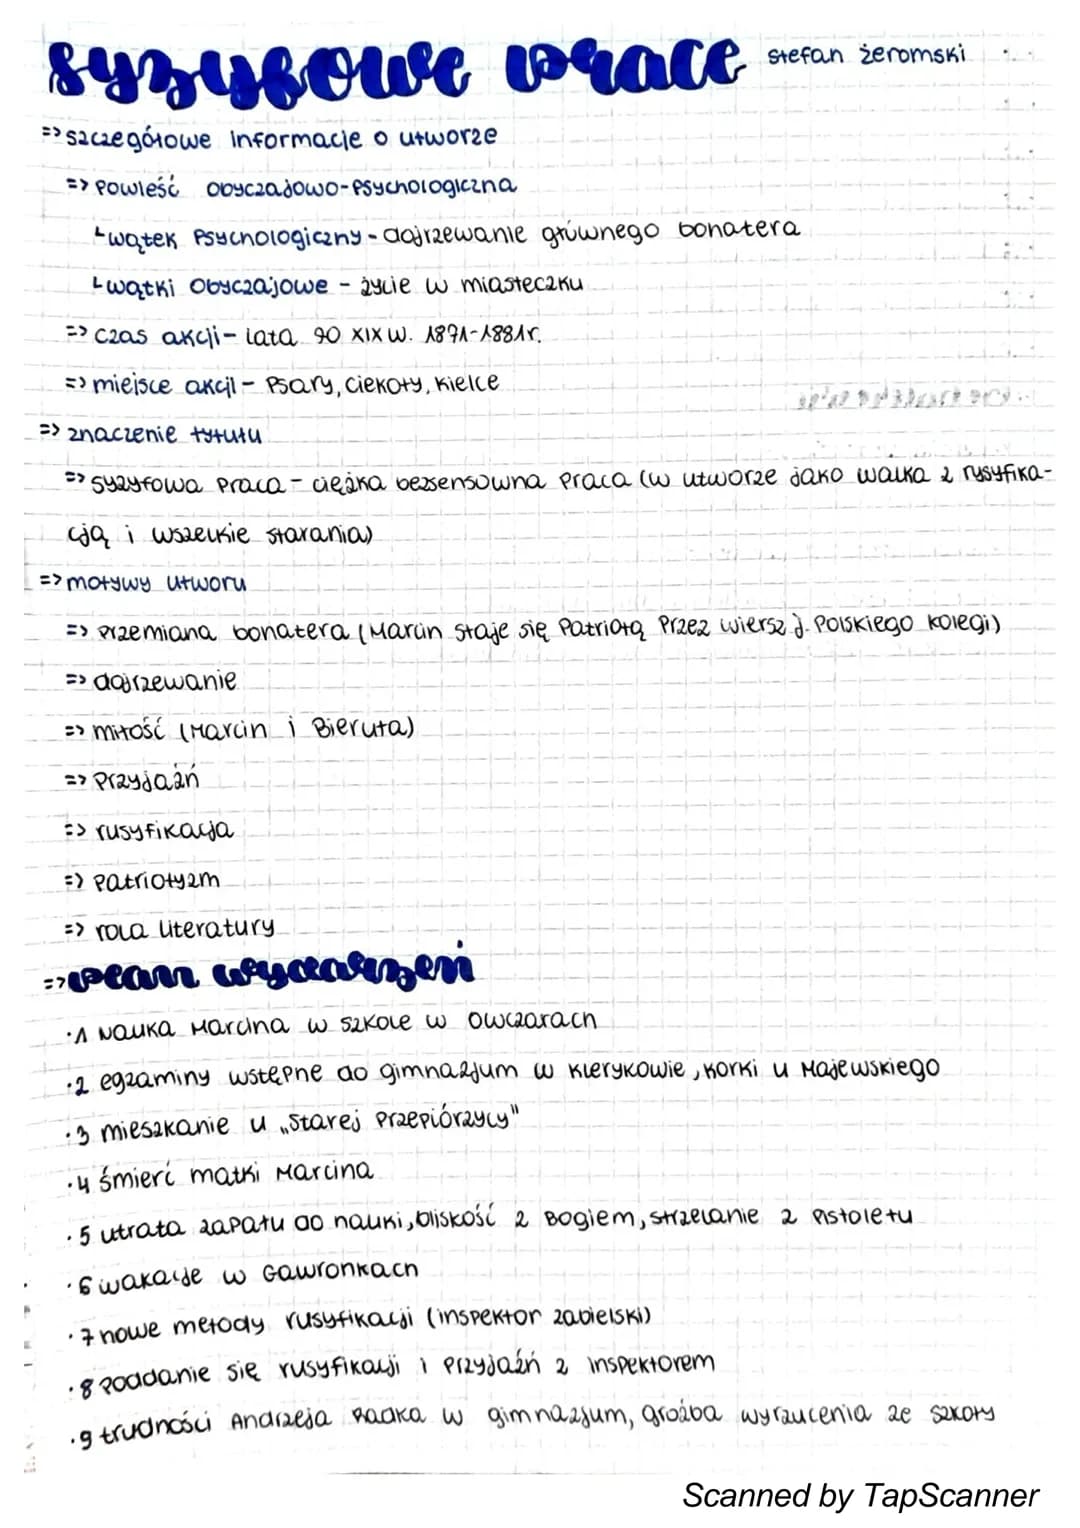 syzyfowe prace stefan żeromski
=> szczegółowe informacje o utworze
=> powieść obyczajowo-psychologiczna
└wątek psychologiczny - dojrzewanie głównego bohatera
└wątki obyczajowe - życie w miasteczku
=> czas akcji - lata 90 XIX w. 1871-1881r.
=> miejsce akcji - Psary, Ciekoty, Kielce
=> znaczenie tytułu
=> syzyfowa praca - ciężka bezsensowna praca (w utworze jako walka z rysyfika-
cją i wszelkie starania)
=> motywy utworu
=> przemiana bohatera (Marcin staje się patriotą przez wiersz j. polskiego kolegi)
=> dojrzewanie
=> miłość (Marcin i Bieruta)
=> przyjaźń
=> rusyfikacja
=> patriotyzm
=> rola literatury
=> plan wydarzeń
·1 nauka Marcina w szkole w Owczarach
·2 egzaminy wstępne do gimnazjum w Klerykowie, korki u Majewskiego
·3 mieszkanie u „Starej Przepiórzycy"
·4 śmierć matki Marcina
·5 utrata zapału do nauki, bliskość z Bogiem, strzelanie z pistoletu
·6 wakacje w Gawronkach
·7 nowe metody rusyfikacji (inspektor zabielski)
·8 poddanie się rusyfikacji i przyjaźń z inspektorem
·9 trudności Andrzeja Radka w gimnazjum, groźba wyrzucenia ze szkoły
Scanned by TapScanner